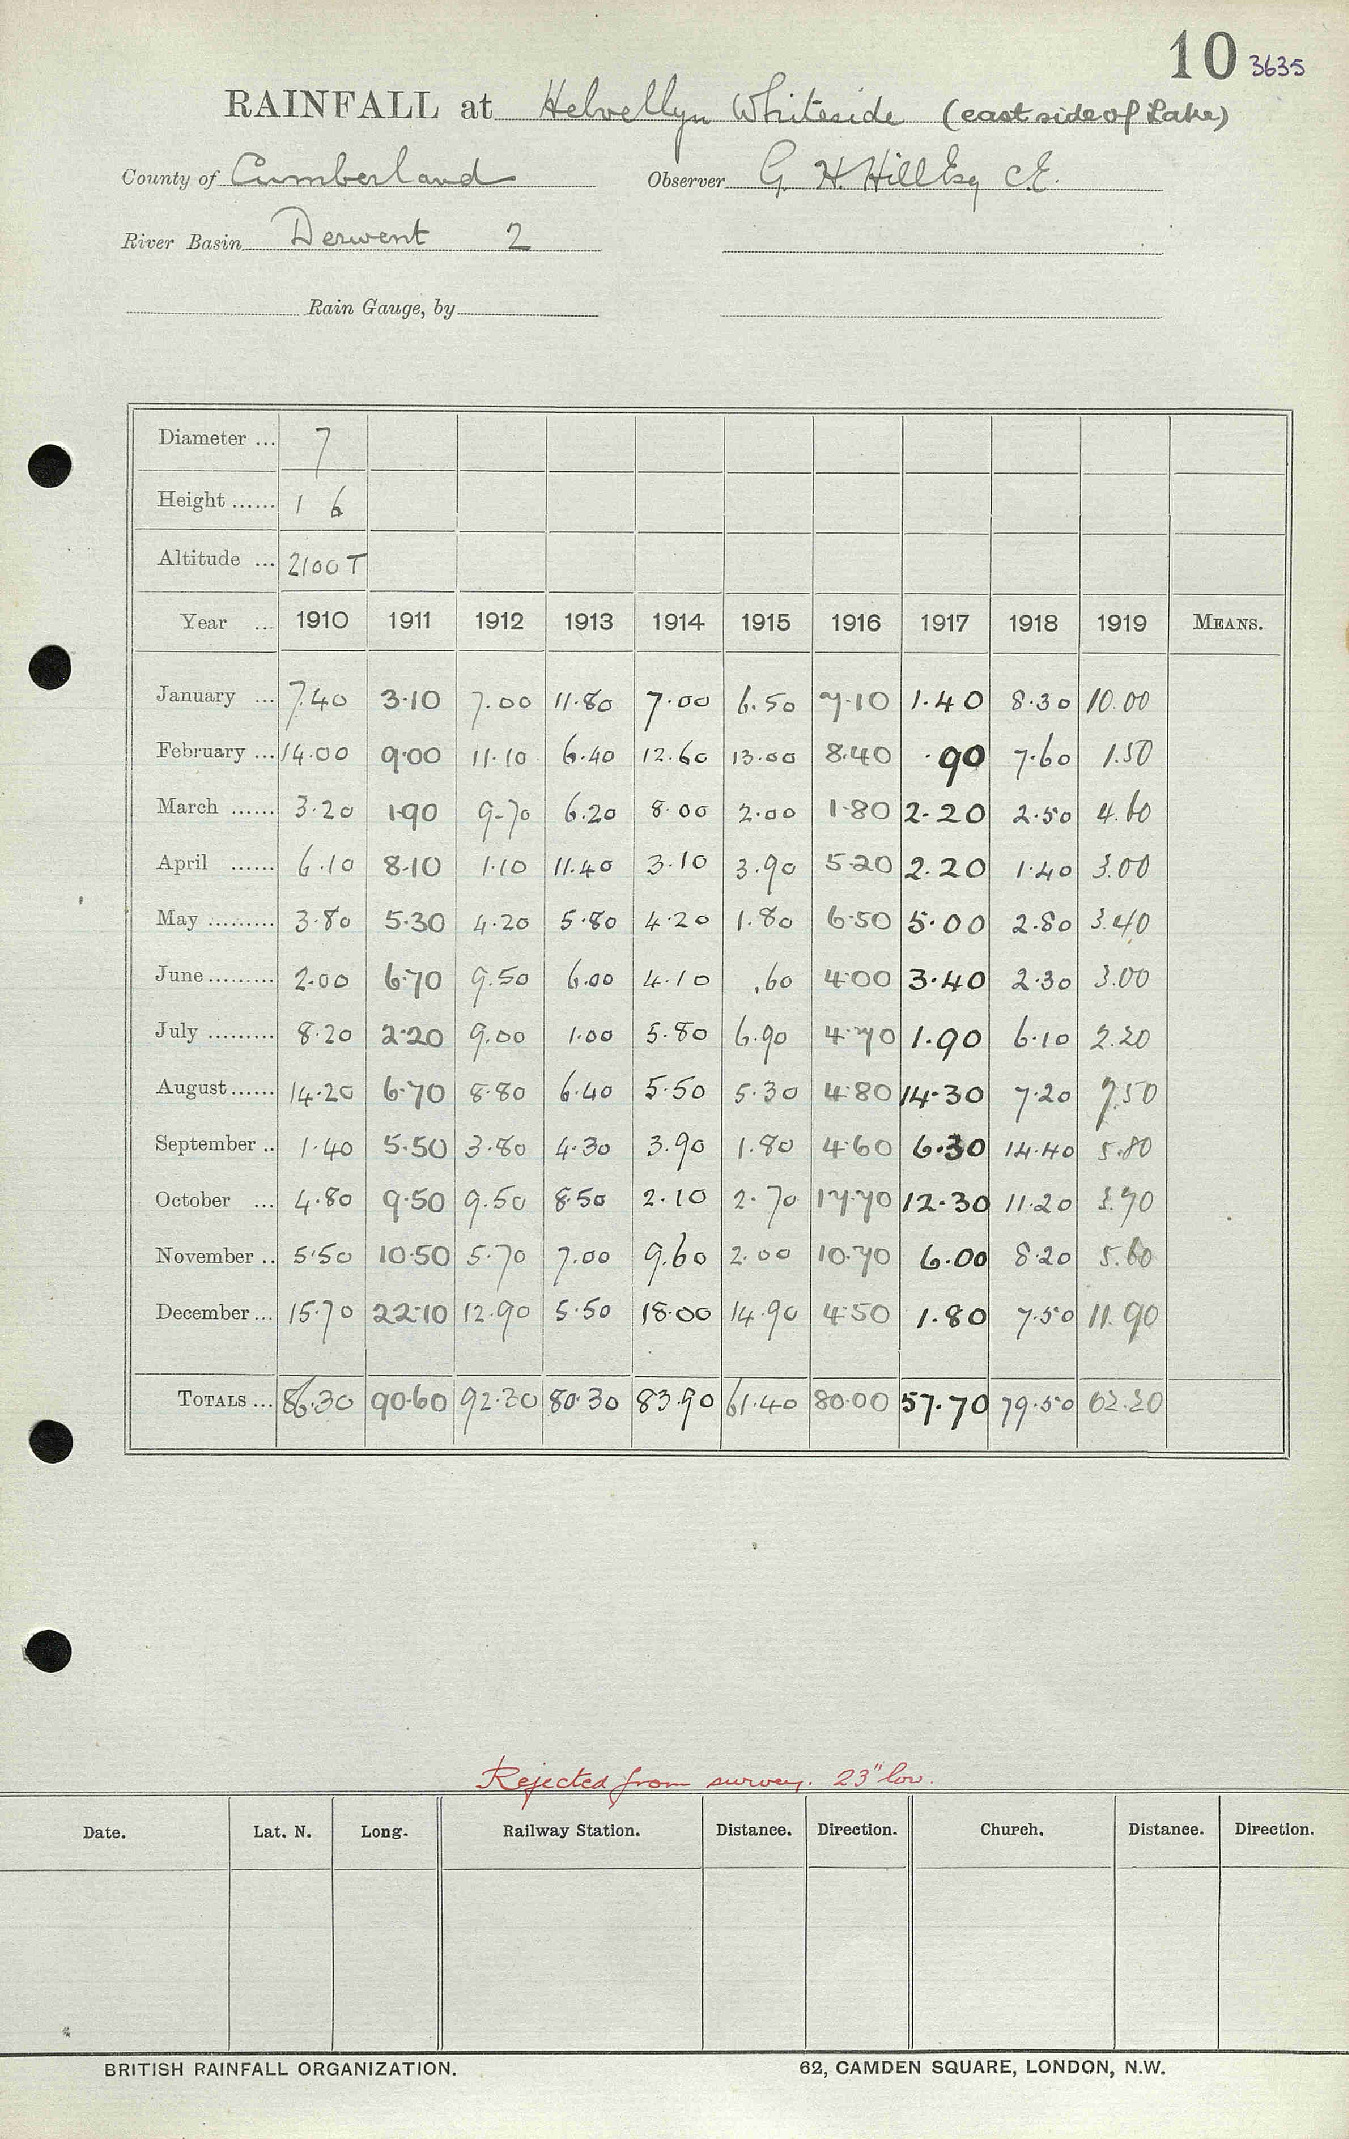 10 3635
RAINFALL at Helvellyn Whiteside (east side of Lake)
County of Cumberland Observer G. H. Hill Esq C.E.
River Basin Derwent 2
Rain Gauge, by
Diameter ... 7
Height ...... 1 6
Altitude ... 2100 T
Year ... 1910 1911 1912 1913 1914 1915 1916 1917 1918 1919 MEANS.
January ... 7.40 3.10 7.00 11.80 7.00 6.50 7.10 1.40 8.30 10.00
February ... 14.00 9.00 11.10 6.40 12.60 13.00 8.40 .90 7.60 1.50
March ...... 3.20 1.90 9.70 6.20 8.00 2.00 1.80 2.20 2.50 4.60
April ...... 6.10 8.10 1.10 11.40 3.10 3.90 5.20 2.20 1.40 3.00
May ......... 3.80 5.30 4.20 5.80 4.20 1.80 6.50 5.00 2.80 3.40
June ......... 2.00 6.70 9.50 6.00 4.10 .60 4.00 3.40 2.30 3.00
July ......... 8.20 2.20 9.00 1.00 5.80 6.90 4.70 1.90 6.10 2.20
August ...... 14.20 6.70 8.80 6.40 5.50 5.30 4.80 14.30 7.20 7.50
September .. 1.40 5.50 3.80 4.30 3.90 1.80 4.60 6.30 14.40 5.80
October ... 4.80 9.50 9.50 8.50 2.10 2.70 17.70 12.30 11.20 3.70
November .. 5.50 10.50 5.70 7.00 9.60 2.00 10.70 6.00 8.20 5.60
December ... 15.70 22.10 12.90 5.50 18.00 14.90 4.50 1.80 7.50 11.90
TOTALS ... 86.30 90.60 92.30 80.30 83.90 61.40 80.00 57.70 79.50 62.20
Rejected from survey. 23" low.
Date. Lat. N. Long. Railway Station. Distance. Direction. Church. Distance. Direction.
BRITISH RAINFALL ORGANIZATION. 62, CAMDEN SQUARE, LONDON, N.W.